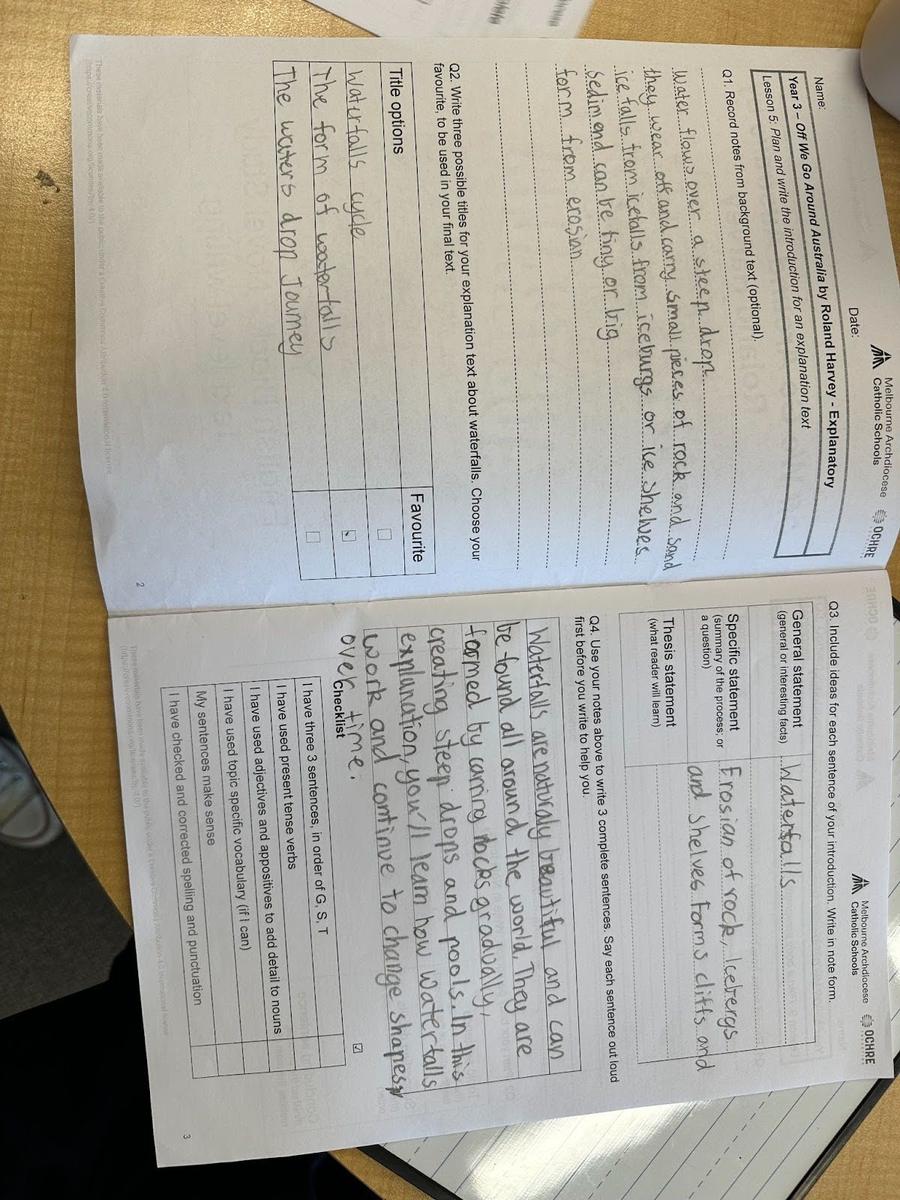 Melbourne Archdiocese
Catholic Schools
OCHRE
Name:
Date:
Year 3 – Off We Go Around Australia by Roland Harvey - Explanatory
Lesson 5: Plan and write the introduction for an explanation text
Q1. Record notes from background text (optional).
Water flows over a steep drop
they wear off and carry small pieces of rock and sand
ice falls from icefalls from iceburgs or ice shelves
sediment can be tiny or big
form from erosian
Q2. Write three possible titles for your explanation text about waterfalls. Choose your
favourite, to be used in your final text.
Title options
Favourite
Waterfalls cycle
The form of waterfalls
The waters drop Journey
2
Melbourne Archdiocese
Catholic Schools
OCHRE
Q3. Include ideas for each sentence of your introduction. Write in note form.
General statement
(general or interesting facts)
Waterfalls
Specific statement
(summary of the process; or
a question)
Erosian of rock, Icebergs
and shelves forms cliffs and
Thesis statement
(what reader will learn)
Q4. Use your notes above to write 3 complete sentences. Say each sentence out loud
first before you write to help you.
Waterfalls are naturaly beautiful and can
be found all around the world. They are
formed by carning rocks gradually,
creating steep drops and pools. In this
explanation, you'll learn how waterfalls
work and continue to change shapes
over time.
Checklist
I have three 3 sentences, in order of G, S, T
I have used present tense verbs
I have used adjectives and appositives to add detail to nouns
I have used topic specific vocabulary (if I can)
My sentences make sense
I have checked and corrected spelling and punctuation
3